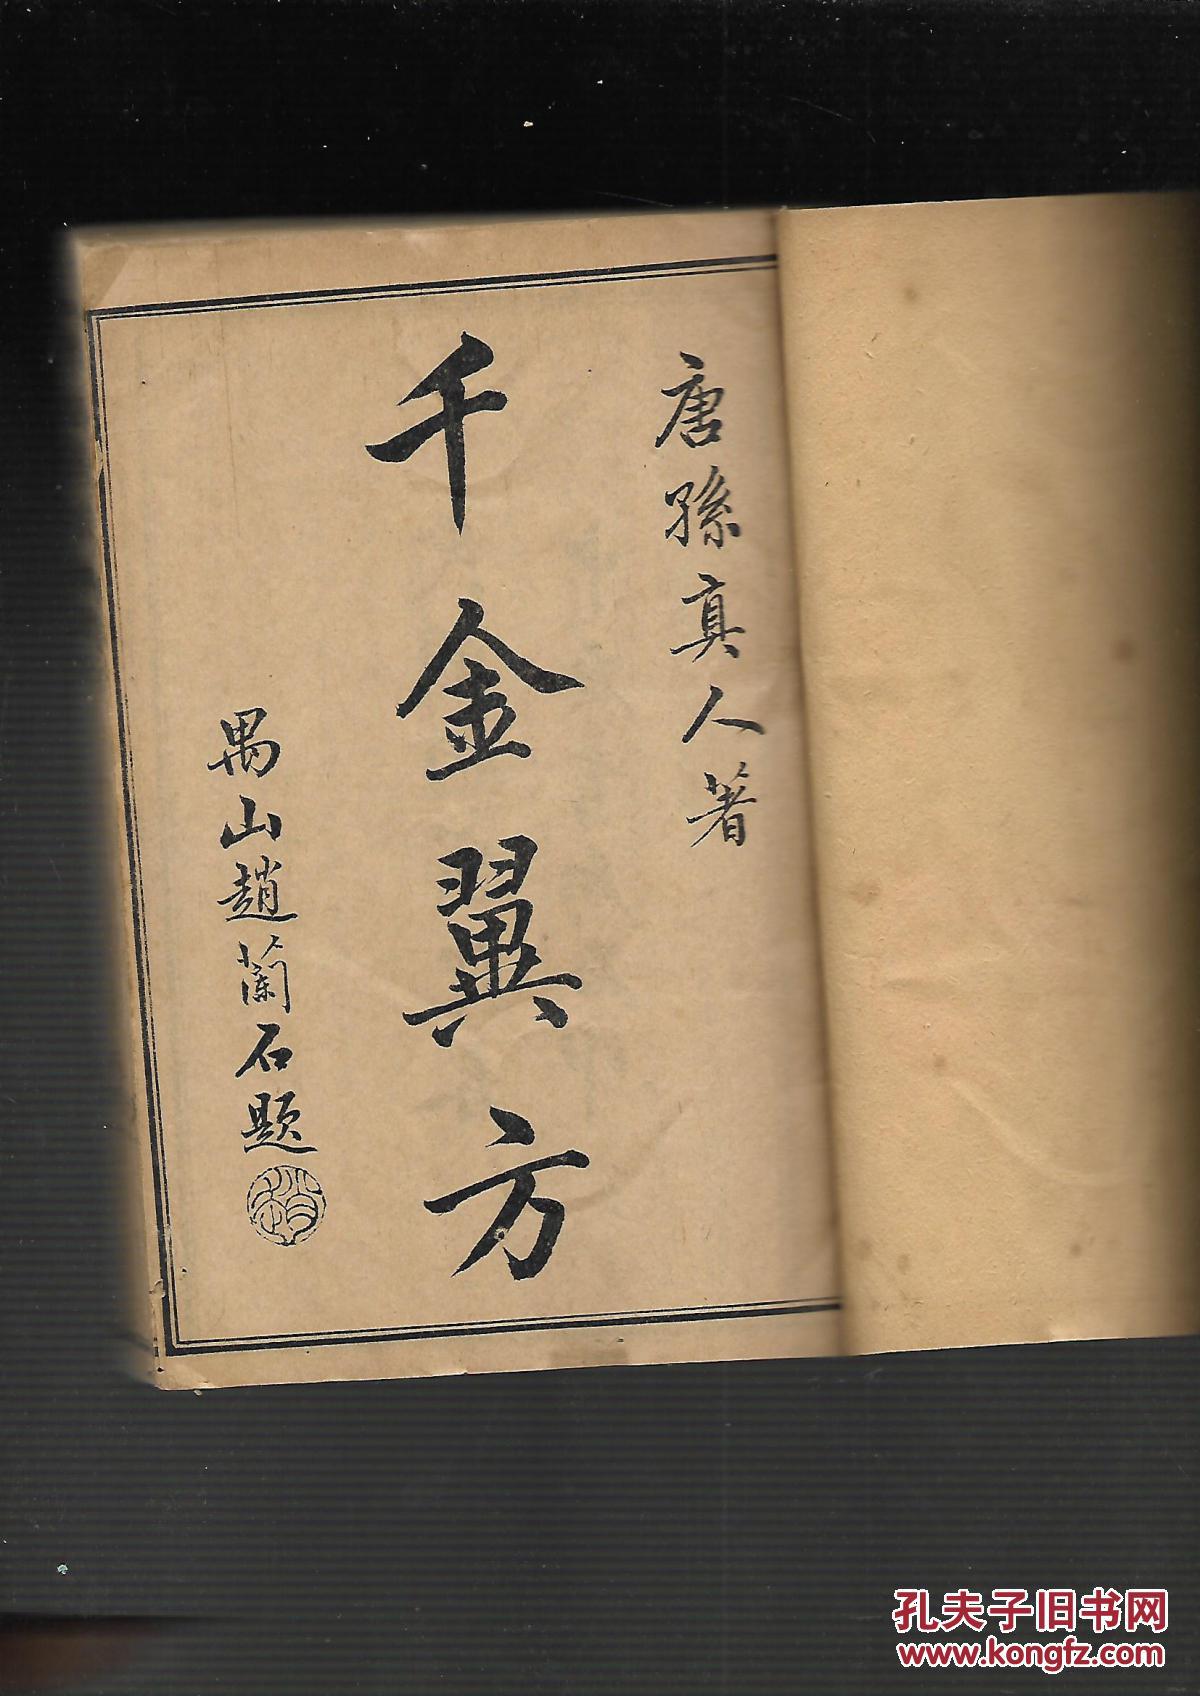 唐孫真人著
千金翼方
禺山趙蘭石題
孔夫子旧书网
www.kongfz.com